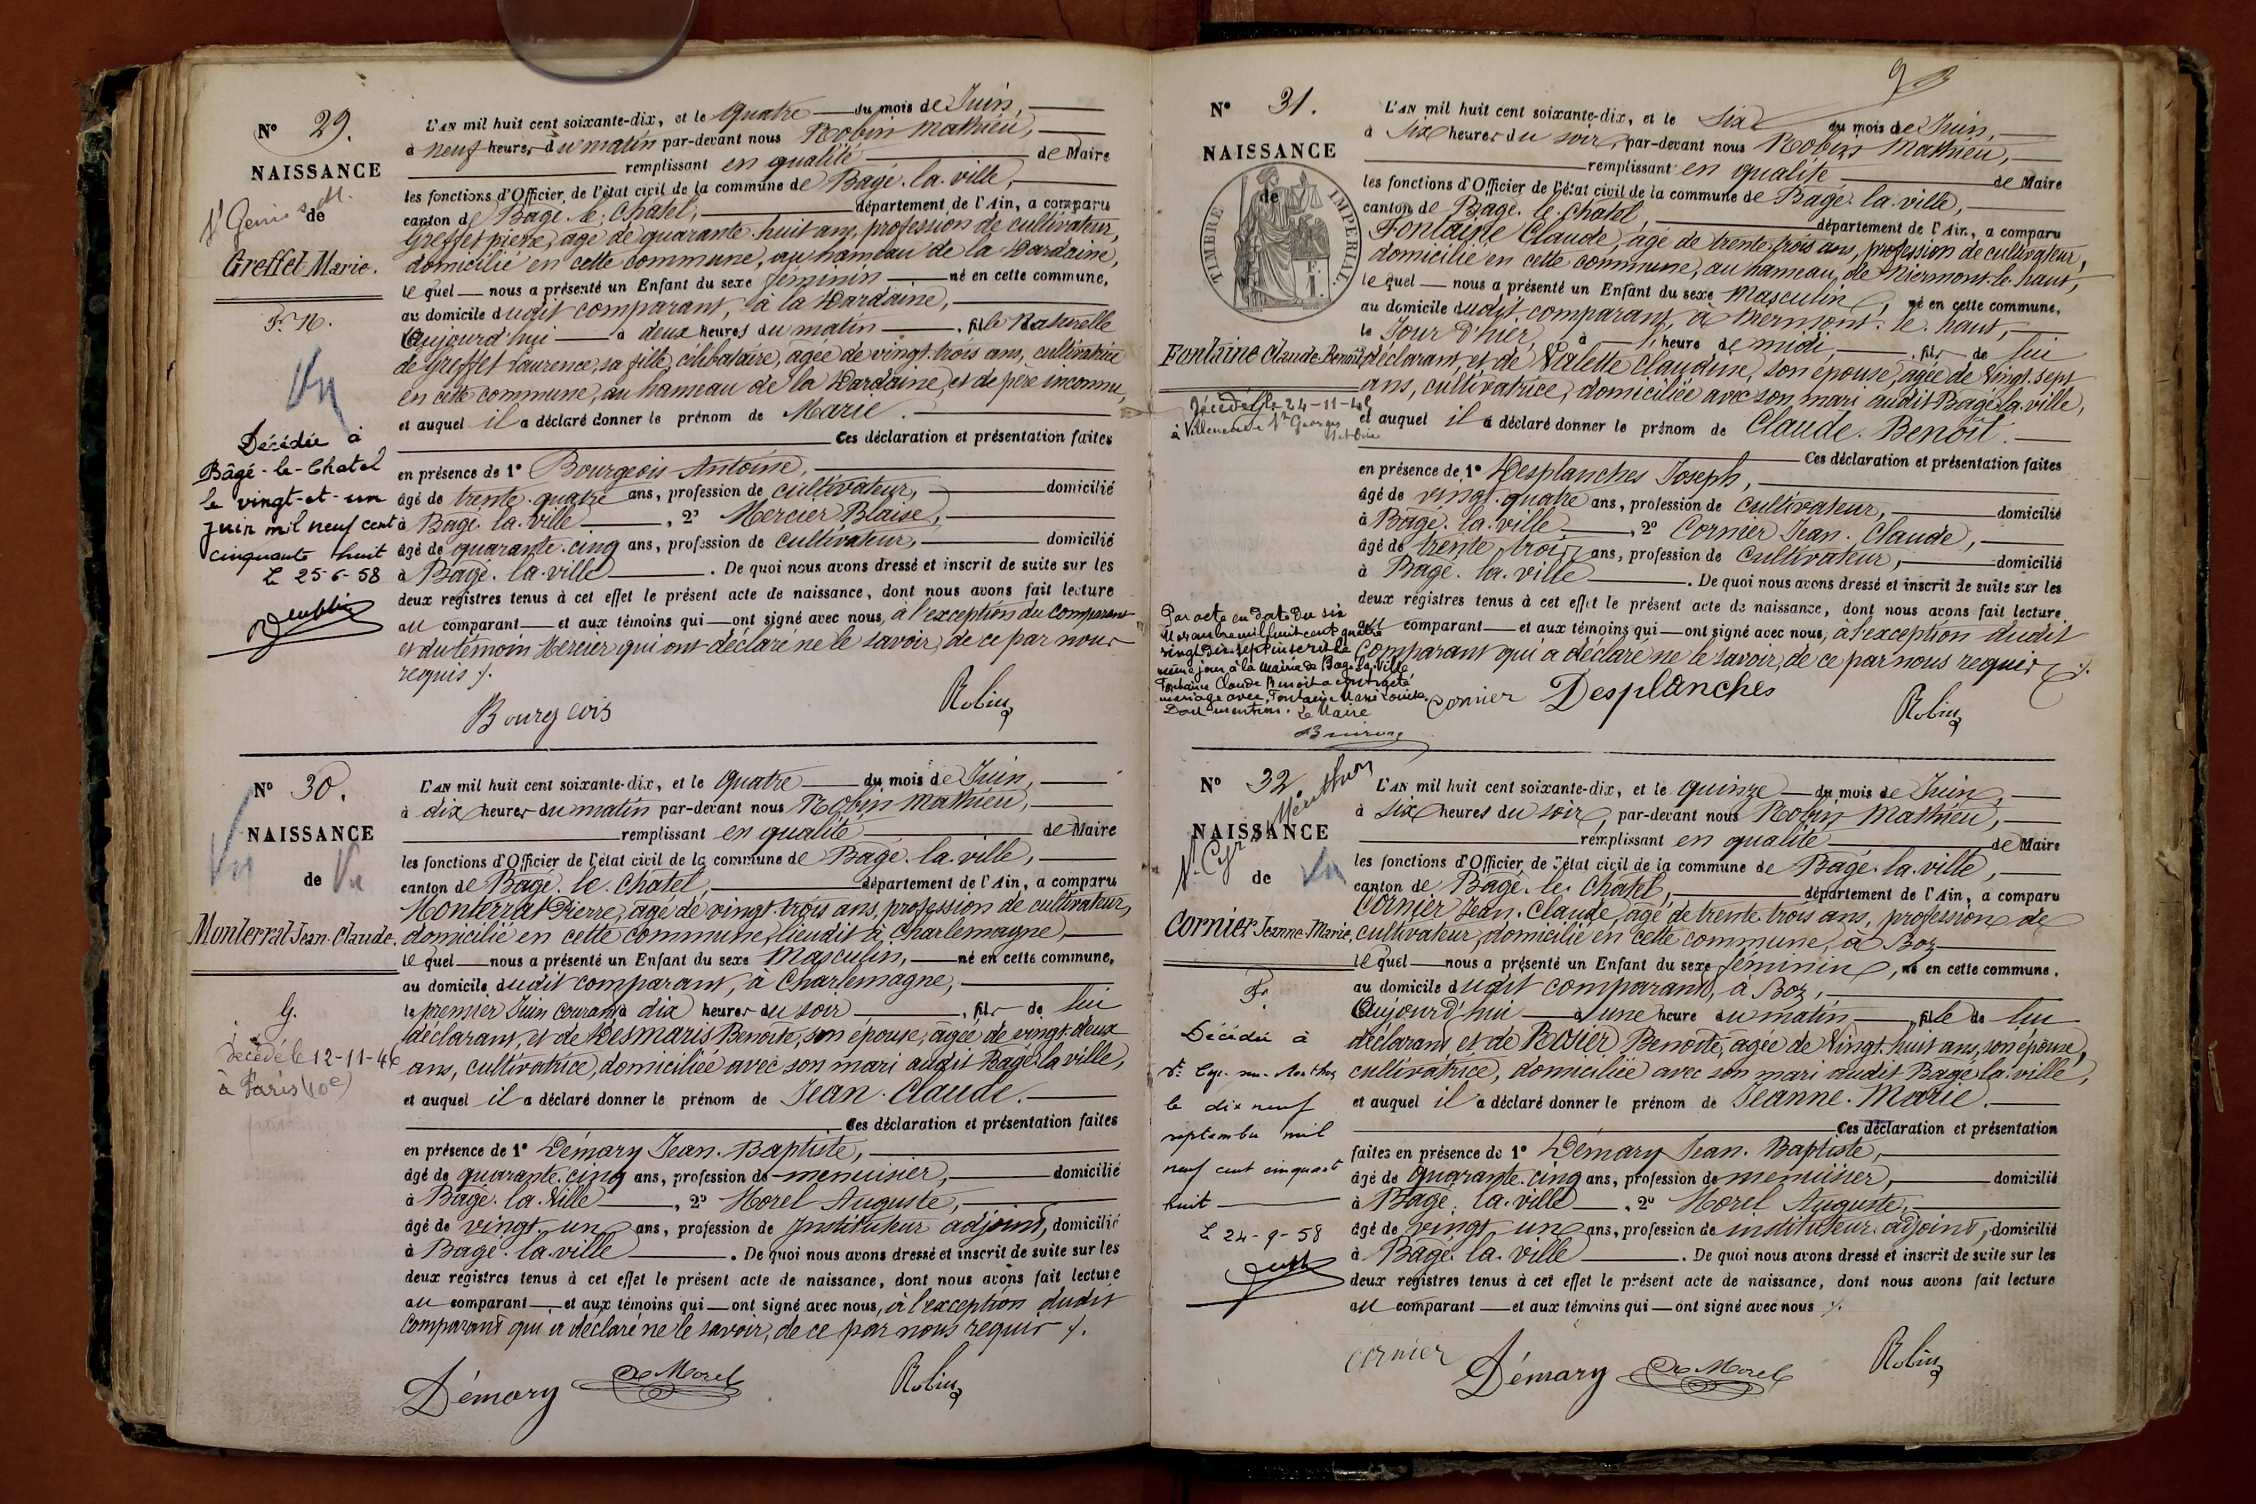 N° 29.
NAISSANCE
de
Greffet Marie.
F. N.
Vu
Décédée à
Bâgé-le-Chatel
le vingt-et-un
juin mil neuf cent
cinquante huit
L 25-6-58
L'AN mil huit cent soixante-dix, et le quatre du mois de Juin,
à neuf heures du matin par-devant nous Robin Mathieu,
remplissant en qualité de Maire
les fonctions d'Officier de l'état civil de la commune de Bagé-la-ville,
canton de Bagé-le-Chatel, département de l'Ain, a comparu
Greffet pierre, agé de quarante-huit ans, profession de cultivateur,
domicilié en cette commune, au hameau de la Dardaine,
lequel nous a présenté un Enfant du sexe féminin né en cette commune,
au domicile dudit comparant, à la Dardaine,
Aujourd'hui à deux heures du matin, fille Naturelle
de Greffet Laurence, sa fille, célibataire, agée de vingt-trois ans, cultivatrice
en cette commune, au hameau de la Dardaine, et de père inconnu,
et auquel il a déclaré donner le prénom de Marie.
Ces déclaration et présentation faites
en présence de 1° Bourgeois Antoine,
âgé de trente-quatre ans, profession de cultivateur, domicilié
à Bagé-la-ville, 2° Mercier Blaise,
âgé de quarante-cinq ans, profession de cultivateur, domicilié
à Bagé-la-ville. De quoi nous avons dressé et inscrit de suite sur les
deux registres tenus à cet effet le présent acte de naissance, dont nous avons fait lecture
au comparant et aux témoins qui ont signé avec nous, à l'exception du comparant
et du témoin Mercier qui ont déclaré ne le savoir, de ce par nous
requis ./.
Bourgeois Robin
N° 30.
NAISSANCE
Vu
de Vu
Monterrat Jean-Claude.
G.
Décédé le 12-11-46
à Paris (10e)
L'AN mil huit cent soixante-dix, et le quatre du mois de Juin,
à dix heures du matin par-devant nous Robin Mathieu,
remplissant en qualité de Maire
les fonctions d'Officier de l'état civil de la commune de Bagé-la-ville,
canton de Bagé-le-Chatel, département de l'Ain, a comparu
Monterrat Pierre, agé de vingt-trois ans, profession de cultivateur,
domicilié en cette commune, lieudit à Charlemagne,
lequel nous a présenté un Enfant du sexe Masculin, né en cette commune,
au domicile dudit comparant, à Charlemagne,
le premier Juin courant à dix heures du soir, fils de lui
déclarant, et de Desmaris Benoite, son épouse, agée de vingt-deux
ans, cultivatrice, domiciliée avec son mari audit Bagé-la-ville,
et auquel il a déclaré donner le prénom de Jean-Claude.
Ces déclaration et présentation faites
en présence de 1° Démary Jean-Baptiste,
âgé de quarante-cinq ans, profession de menuisier, domicilié
à Bagé-la-Ville, 2° Morel Auguste,
âgé de vingt-un ans, profession de Instituteur adjoint, domicilié
à Bagé-la-ville. De quoi nous avons dressé et inscrit de suite sur les
deux registres tenus à cet effet le présent acte de naissance, dont nous avons fait lecture
au comparant et aux témoins qui ont signé avec nous, à l'exception dudit
comparant qui a déclaré ne le savoir, de ce par nous requis ./.
Démary Morel Robin
N° 31.
NAISSANCE
de
TIMBRE IMPERIAL
1 F.
Fontaine Claude-Benoît
Décédé le 24-11-
à Villeneuve St Georges
Par acte en date du six
mil huit cent quatre
vingt dix-sept inscrit le
même jour à la Mairie de Bagé-la-Ville
Fontaine Claude Benoît a contracté
mariage avec Fontaine Marie Louise.
Dont mention. Le Maire
L'AN mil huit cent soixante-dix, et le six du mois de Juin,
à six heures du soir, par-devant nous Robin Mathieu,
remplissant en qualité de Maire
les fonctions d'Officier de l'état civil de la commune de Bagé-la-ville,
canton de Bagé-le-Chatel, département de l'Ain, a comparu
Fontaine Claude, agé de trente-trois ans, profession de cultivateur,
domicilié en cette commune, au hameau de Mermont-le-haut,
lequel nous a présenté un Enfant du sexe Masculin, né en cette commune,
au domicile dudit comparant, à Mermont-le-haut,
le Jour d'hier, à l'heure de midi, fils de lui
déclarant, et de Valette Claudine, son épouse, agée de Vingt-sept
ans, cultivatrice, domiciliée avec son mari audit Bagé-la-ville,
et auquel il a déclaré donner le prénom de Claude-Benoît.
Ces déclaration et présentation faites
en présence de 1° Desplanches Joseph,
âgé de vingt-quatre ans, profession de cultivateur, domicilié
à Bagé-la-ville, 2° Cornier Jean-Claude,
âgé de trente-trois ans, profession de cultivateur, domicilié
à Bagé-la-ville. De quoi nous avons dressé et inscrit de suite sur les
deux registres tenus à cet effet le présent acte de naissance, dont nous avons fait lecture
au comparant et aux témoins qui ont signé avec nous, à l'exception dudit
Comparant qui a déclaré ne le savoir, de ce par nous requis ./.
Cornier Desplanches Robin
N° 32
NAISSANCE
de Vu
Cornier Jeanne-Marie.
F.
Décédée à
St Cyr-sur-Menthon
le dix neuf
septembre mil
neuf cent cinquante
huit
L 24-9-58
L'AN mil huit cent soixante-dix, et le quinze du mois de Juin,
à six heures du soir, par-devant nous Robin Mathieu,
remplissant en qualité de Maire
les fonctions d'Officier de l'état civil de la commune de Bagé-la-ville,
canton de Bagé-le-Châtel, département de l'Ain, a comparu
Cornier Jean-Claude, agé de trente-trois ans, profession de
cultivateur, domicilié en cette commune, à Boz
lequel nous a présenté un Enfant du sexe féminin, né en cette commune,
au domicile dudit comparant, à Boz,
Aujourd'hui à une heure du matin, fille de lui
déclarant et de Benoîte, agée de Vingt-huit ans, son épouse,
cultivatrice, domiciliée avec son mari audit Bagé-la-ville,
et auquel il a déclaré donner le prénom de Jeanne-Marie.
Ces déclaration et présentation
faites en présence de 1° Démary Jean-Baptiste,
âgé de quarante-cinq ans, profession de menuisier, domicilié
à Bagé-la-ville, 2° Morel Auguste,
âgé de vingt-un ans, profession de instituteur-adjoint, domicilié
à Bagé-la-ville. De quoi nous avons dressé et inscrit de suite sur les
deux registres tenus à cet effet le présent acte de naissance, dont nous avons fait lecture
au comparant et aux témoins qui ont signé avec nous ./.
Cornier Démary Morel Robin